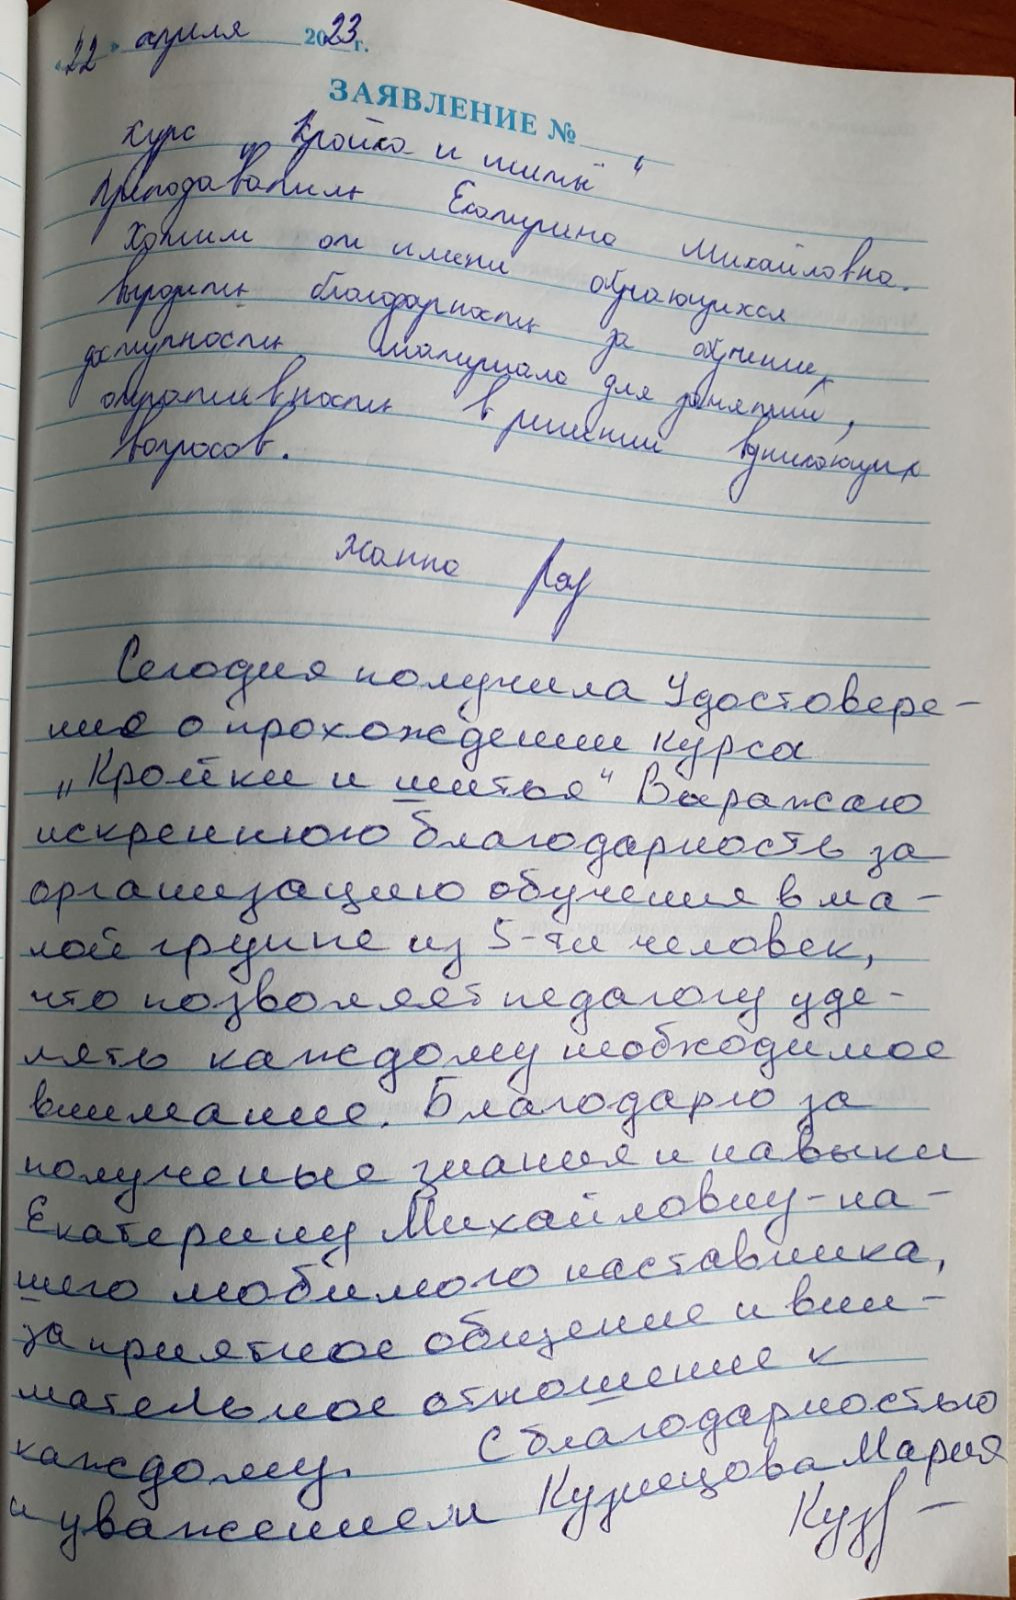 "22" апреля 2023 г.
ЗАЯВЛЕНИЕ №
Курс „Кройка и шитьё"
Преподаватель Екатерина Михайловна.
Хотим от имени обучающихся
выразить благодарность за обучение,
доступность материала для занятий,
оперативность в решении возникающих
вопросов.
Жанна
Сегодня получила Удостовере-
ние о прохождении курса
„Кройки и шитья" Выражаю
искреннюю благодарность за
организацию обучения в ма-
лой группе из 5-ти человек,
что позволяет педагогу уде-
лять каждому необходимое
внимание. Благодарю за
полученые знания и навыки
Екатерину Михайловну - на-
шего любимого наставника,
за приятное общение и вни-
мательное отношение к
каждому. С благодарностью
и уважением Кузнецова Мария